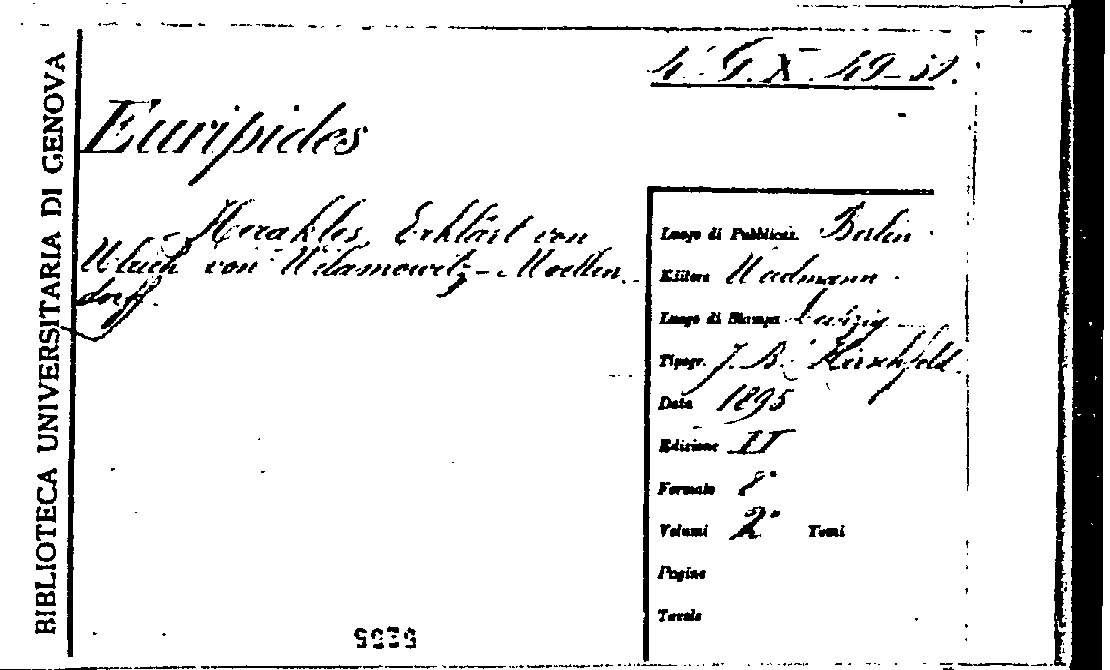 BIBLIOTECA UNIVERSITARIA DI GENOVA
4. G. X. 49-50.
Euripides
Herakles, Erklärt von
Ulrich von Wilamowitz-Moellen
dorff.
Luogo di Pubblicaz. Berlin
Editore Weidmann
Luogo di Stampa Leipzig
Tipogr. J. B. Hirschfeld.
Data 1895
Edizione II
Formato 8°
Volumi 2° Tomi
Pagine
Tavole